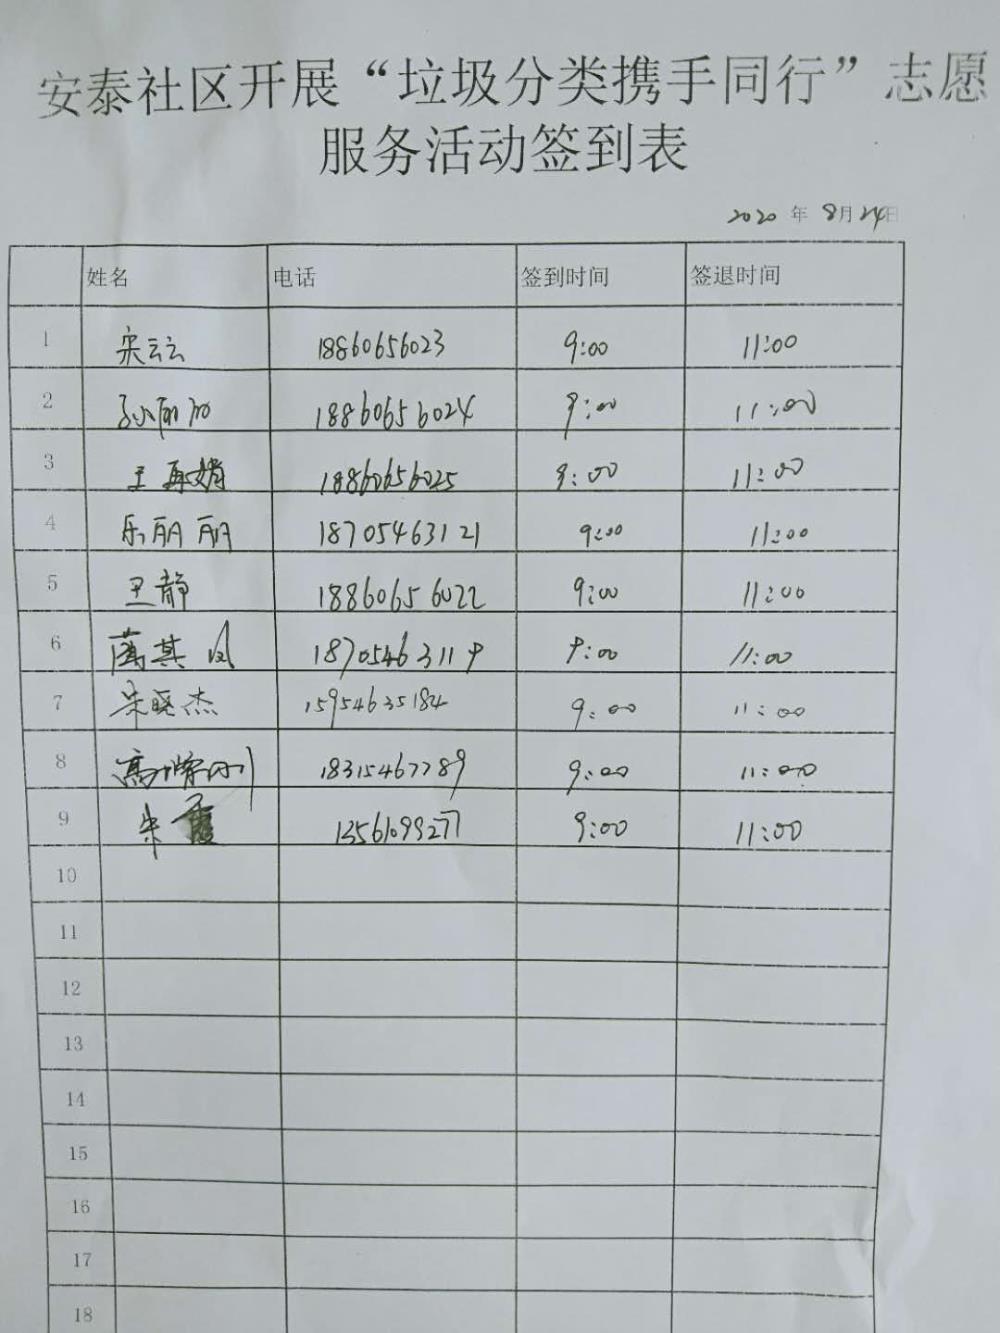 安泰社区开展“垃圾分类携手同行”志愿
服务活动签到表
2020 年 8月24日
姓名 电话 签到时间 签退时间
1 宋云云 18860656023 9:00 11:00
2 孙丽 18860656024 9:00 11:00
3 王再娟 18860656025 9:00 11:00
4 乐丽丽 18705463121 9:00 11:00
5 王静 18860656022 9:00 11:00
6 蔺其凤 1870546311 9:00 11:00
7 宋晓杰 15954635184 9:00 11:00
8 高 刚 18315467789 9:00 11:00
9 朱霞 13561099277 9:00 11:00
10
11
12
13
14
15
16
17
18